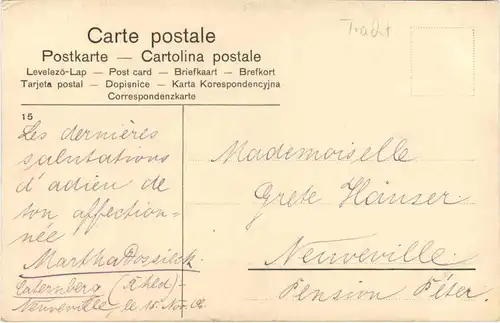 Tracht
Carte postale
Postkarte — Cartolina postale
Levelező-Lap — Post card — Briefkaart — Brefkort
Tarjeta postal — Dopisnice — Karta Korespondencyjna
Correspondenzkarte
15
Les dernières
salutations
d'adieu de
ton affection-
née
Martha
Neuveville, le 15. Nov. 06.
Mademoiselle
Grete Häuser
Neuveville
Pension Péter.